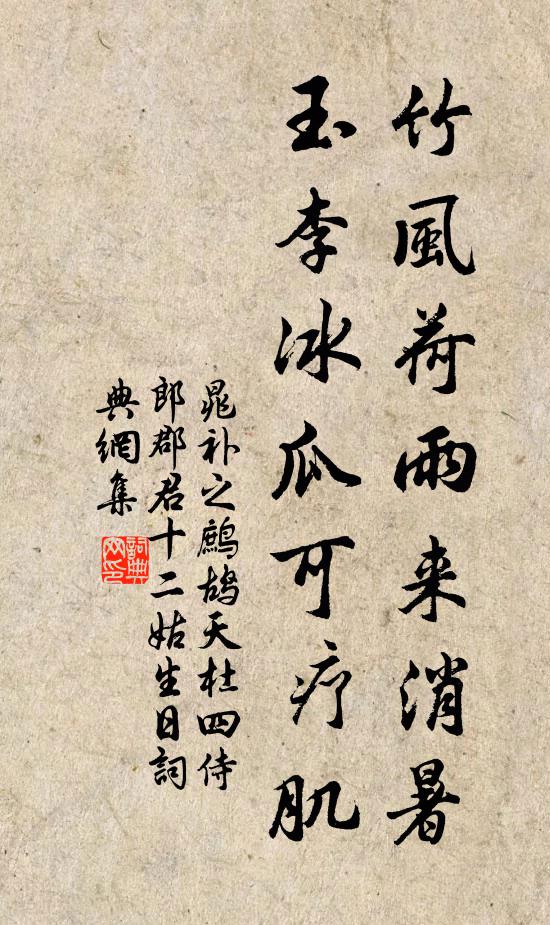 竹風荷雨来消暑
玉李冰瓜可疗肌
晁补之鷓鴣天杜四侍
郎郡君十二姑生日詞
典網集
詞典
网印